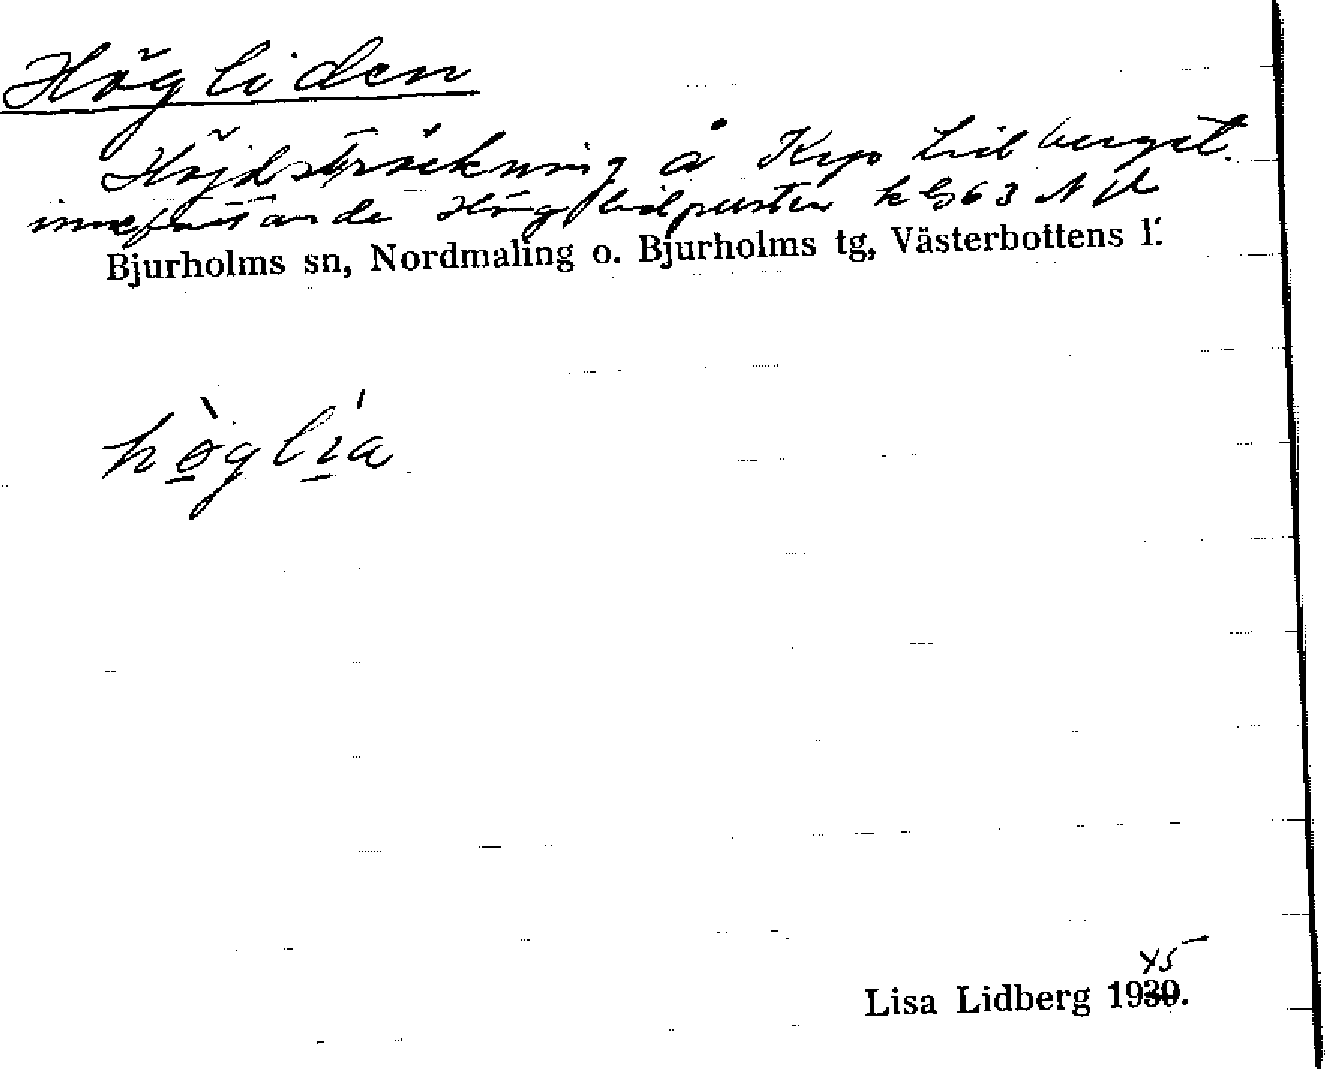 Högliden
Höjdsträckning å Krp Lidberget.
innefattande Höglidpusten kl 63 NV
Bjurholms sn, Nordmaling o. Bjurholms tg, Västerbottens l.
hö̀glía
45
Lisa Lidberg 1930.